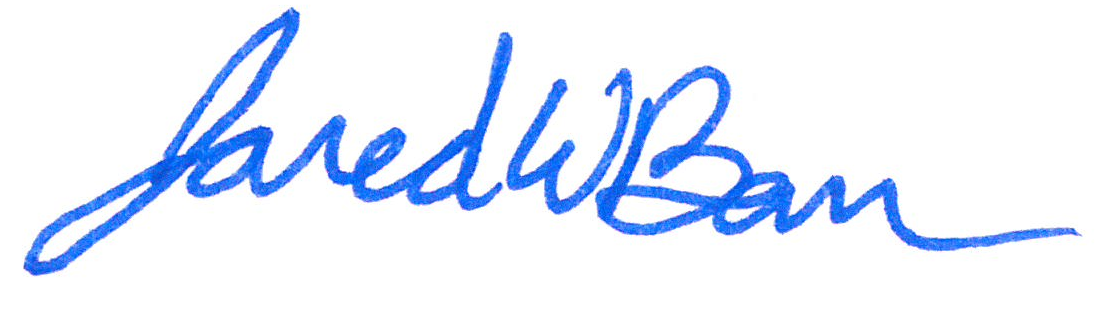 Jared W Barr